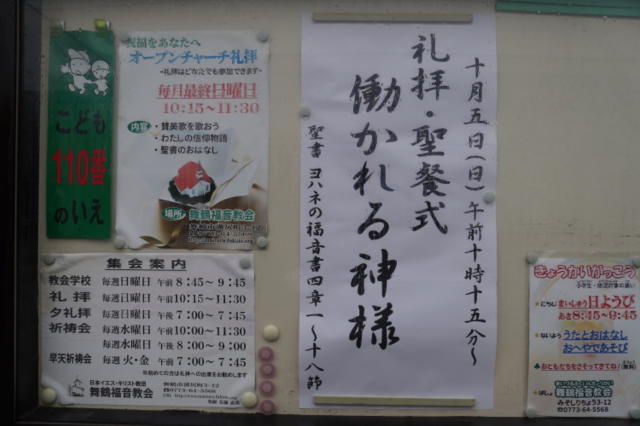 こども
110番
のいえ
祝福をあなたへ
オープンチャーチ礼拝
-礼拝はどなたでも参加できます-
毎月最終日曜日
10:15～11:30
内容
・賛美歌を歌おう
・わたしの信仰物語
・聖書のおはなし
場所
舞鶴福音教会
十月五日(日)午前十時十五分～
礼拝・聖餐式
働かれる神様
聖書 ヨハネの福音書四章一～十八節
集会案内
教会学校 毎週日曜日 午前 8:45～9:45
礼拝 毎週日曜日 午前10:15～11:30
夕礼拝 毎週日曜日 午後 7:00～7:45
祈祷会 毎週水曜日 午前10:00～11:30
毎週水曜日 午後 8:00～9:00
早天祈祷会 毎週 火・金 午前 7:00～7:45
※初めての方は礼拝への出席をお勧めします
日本イエス・キリスト教団
舞鶴福音教会
☎0773-64-5568
きょうかいがっこう
にちじ
まいしゅう日ようび
あさ8:45～9:45
ないよう
うたとおはなし
おへやであそび
おともだちをさそってきてね!
(無料)
ばしょ
舞鶴福音教会
みぞしりちょう3-12
☎0773-64-5568